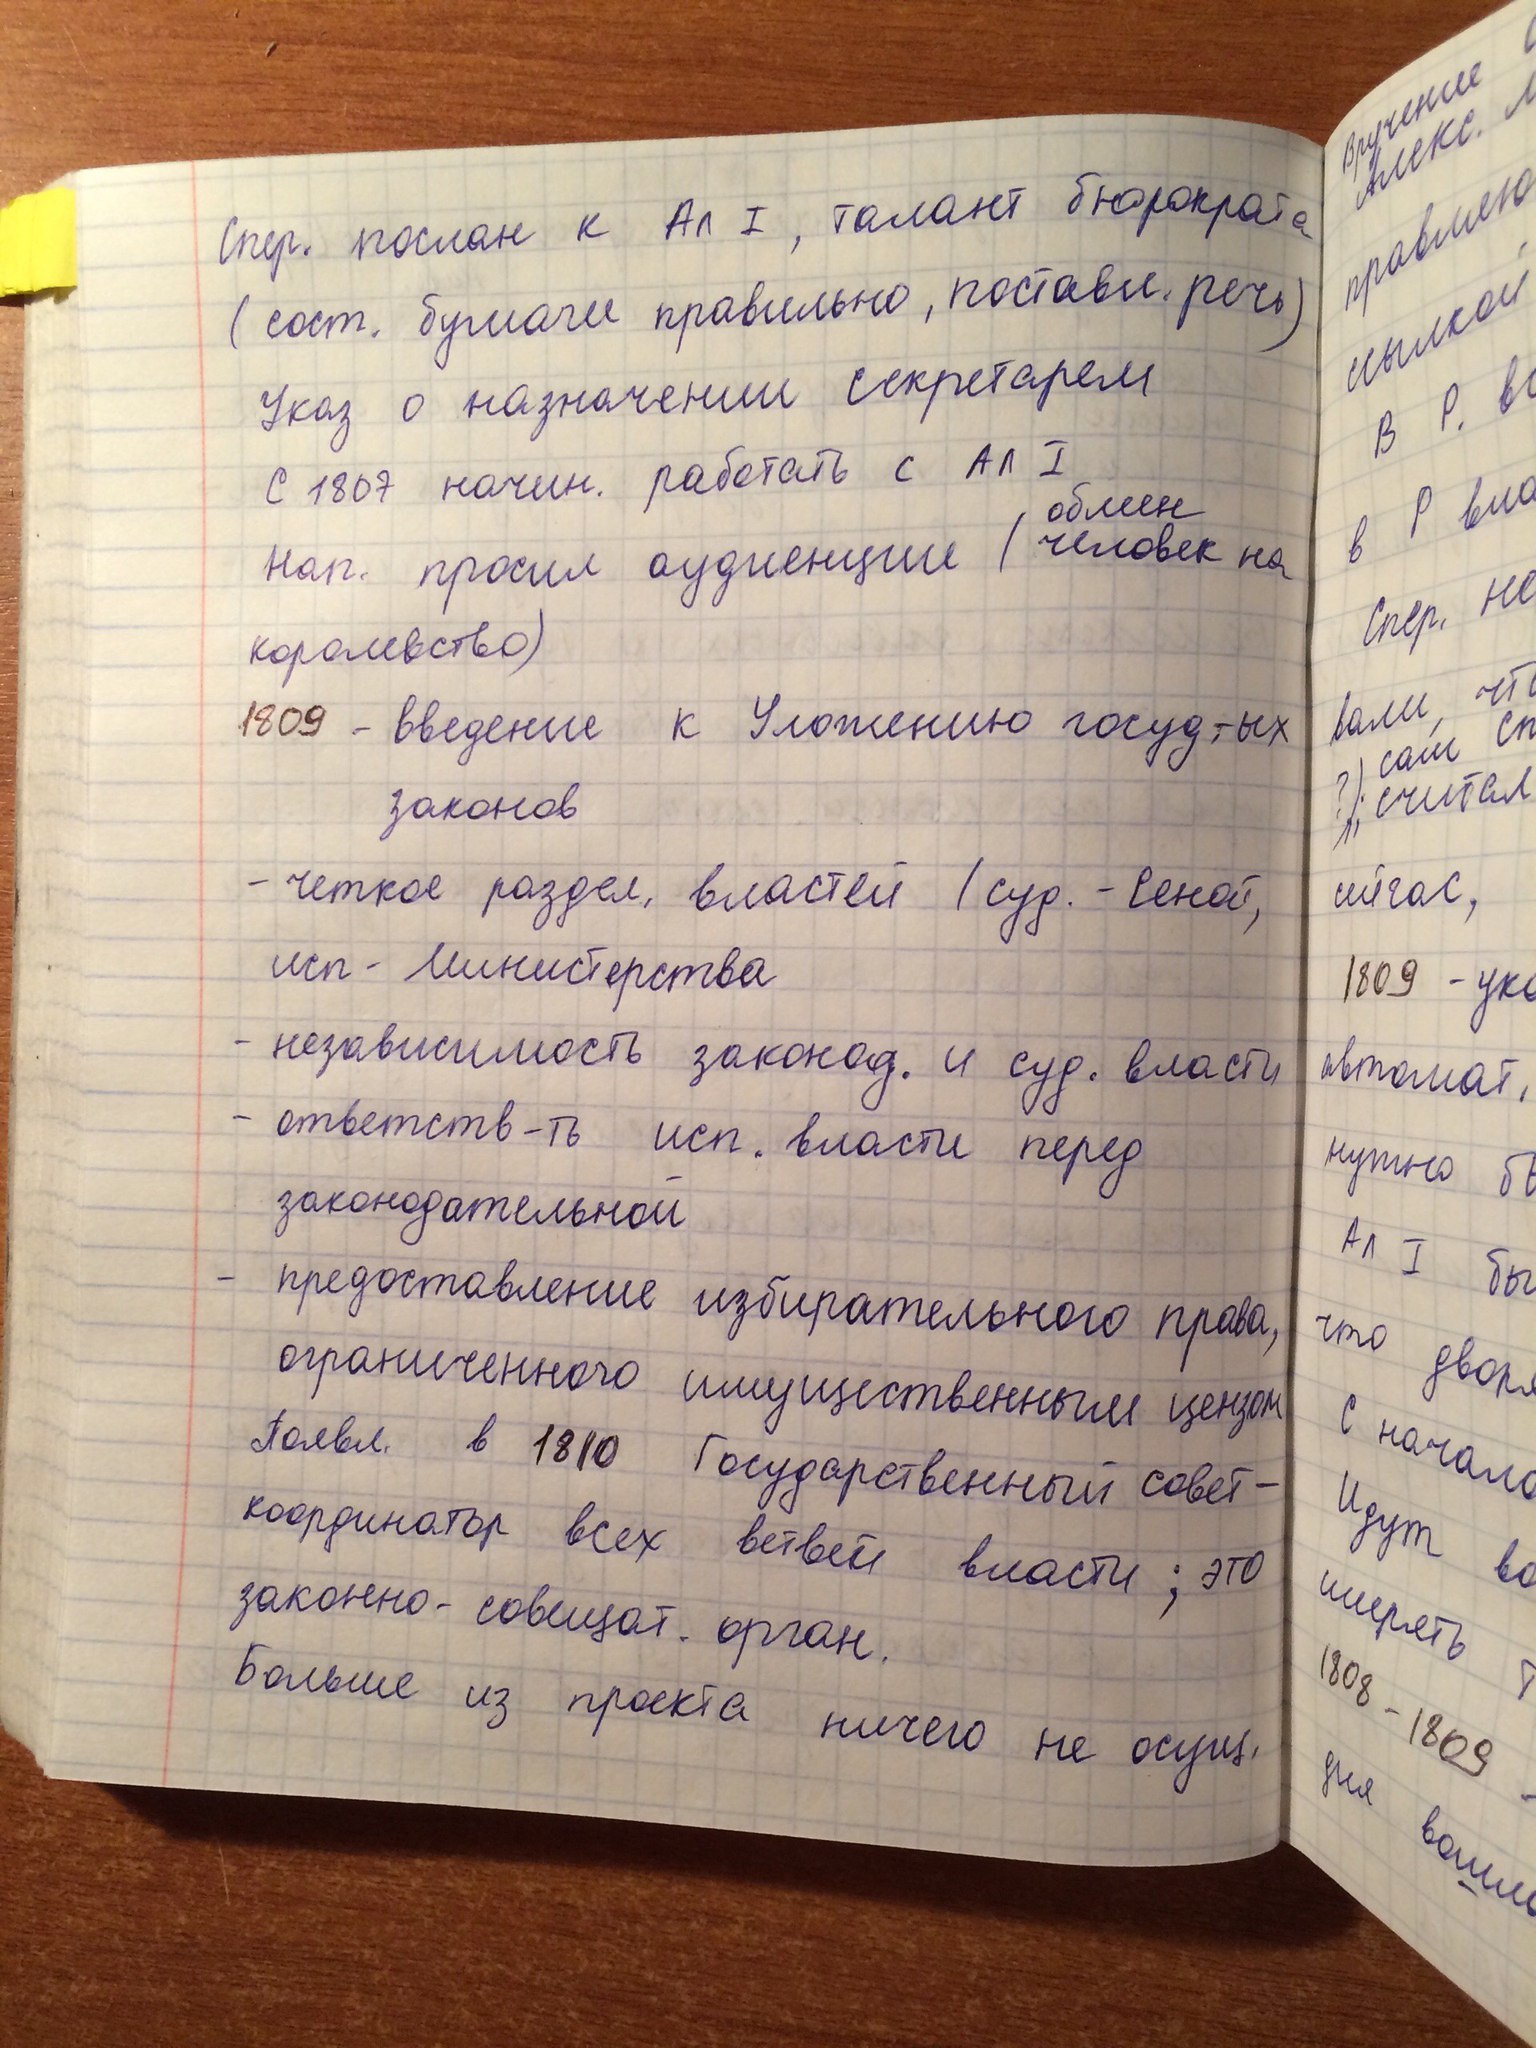 Спер. послан к Ал I, талант бюрократа
(сост. бумаги правильно, поставл. речь)
Указ о назначении секретарем
С 1807 начин. работать с Ал I
обмен
Нап. просил аудиенции (человек на
королевство)
1809 - введение к Уложению госуд-ых
законов
- четкое раздел. властей (суд. - Сенат,
исп - Министерства
- независимость законод. и суд. власти
- ответств-ть исп. власти перед
законодательной
- предоставление избирательного права,
ограниченного имущественным цензом
Появл. в 1810 Государственный совет -
координатор всех ветвей власти; это
законно-совещат. орган.
Больше из проекта ничего не осущ.
Вручение
Алекс.
правлею
ссылкой
В Р.
в Р вла
Спер. не
вали, что
?) сам Сп
считал
сейчас,
1809 - ука
автомат.
нужно бы
Ал I бы
что дворя
С начала
Идут во
мерять
1808 - 1809 -
дия вошла